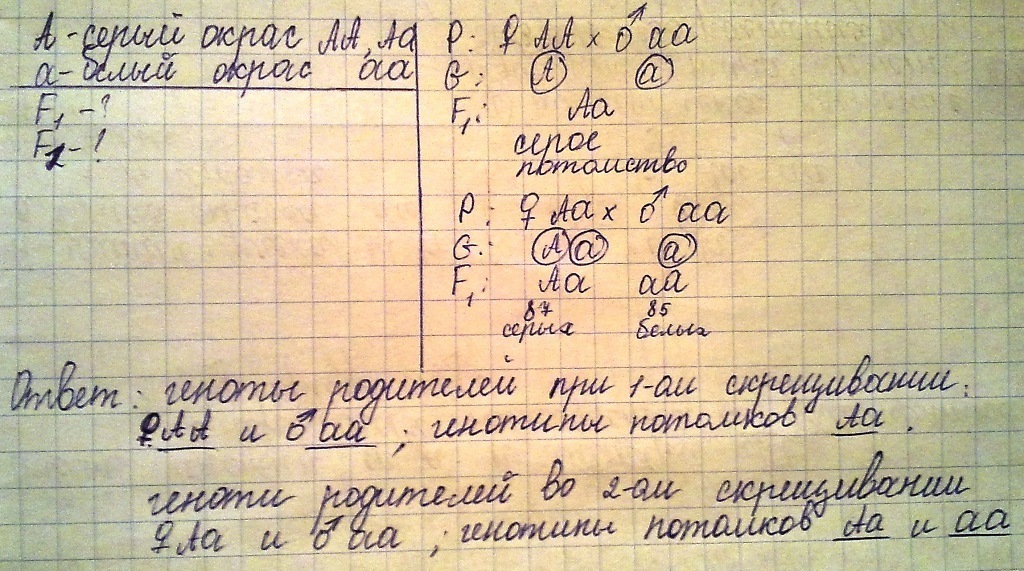 A - серый окрас AA, Aa
a - белый окрас aa
F₁ - ?
F₂ - ?
P: ♀ AA x ♂ aa
G: A a
F₁: Aa
серое
потомство
P: ♀ Aa x ♂ aa
G: A a a
F₁: Aa aa
87 85
серых белых
Ответ: геноты родителей при 1-ом скрещивании:
♀ AA и ♂ aa ; генотипы потомков Aa .
геноти родителей во 2-ом скрещивании
♀ Aa и ♂ aa ; генотипы потомков Aa и aa